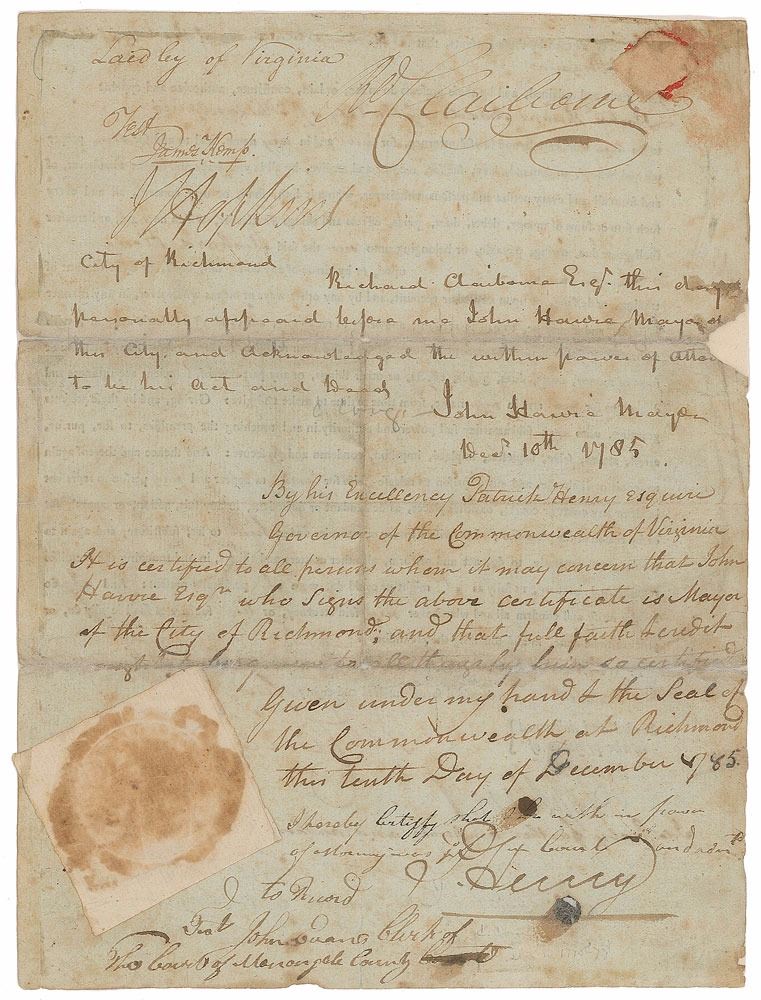 Laidley of Virginia
Rd Claiborne
Test
James Kemp.
J Hopkins
City of Richmond
Richard Claiborne Esqr. this day
personally appeard before me John Harvie Mayor of
this City and Acknowledged the within power of Attor
to be his Act and Deed
John Harvie Mayor
Decr. 10th 1785.
By his Excellency Patrick Henry esquire
Governor of the Commonwealth of Virginia
It is certified to all persons whom it may concern that John
Harvie Esqr. who signs the above certificate is Mayor
of the City of Richmond; and that full faith & credit
to all things by him so certified
Given under my hand & the Seal of
the Commonwealth at Richmond
this tenth Day of December 1785.
I hereby Certify that the with in power
of attorney was in Court and
to Record
P. Henry
Test John Evans Clerk of
The Court of Monongale County